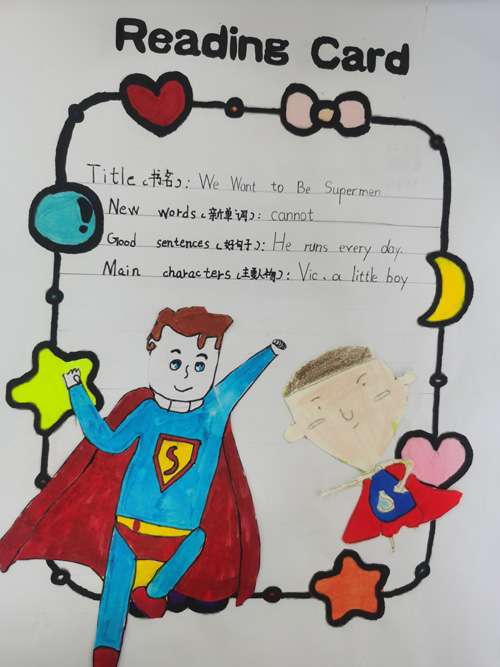 Reading Card
Title (书名): We Want to Be Supermen
New words (新单词): cannot
Good sentences (好句子): He runs every day.
Main characters (主要人物): Vic, a little boy
S